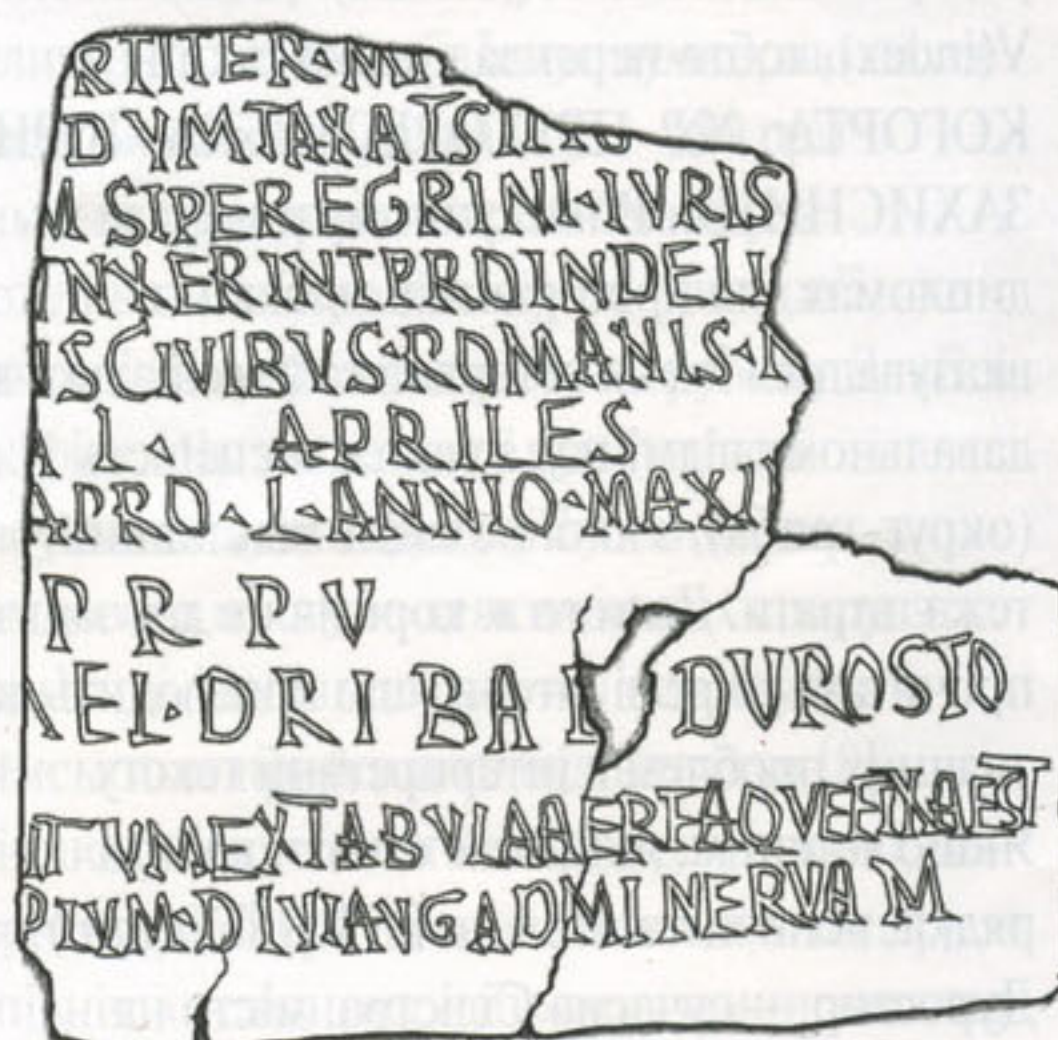 RTITER·MIL
DVMTAXATSING
M SIPEREGRINI·IVRIS
INXERINTPROINDELI
ISCIVIBVS·ROMANIS·
A L· APRILES
APRO·L·ANNIO·MAXI
P R P V
EL·DRIBAL DVROSTO
ITVMEXTABVLAAEREAQVEFIXAEST
PLVM·DIVIAVGADMINERVAM